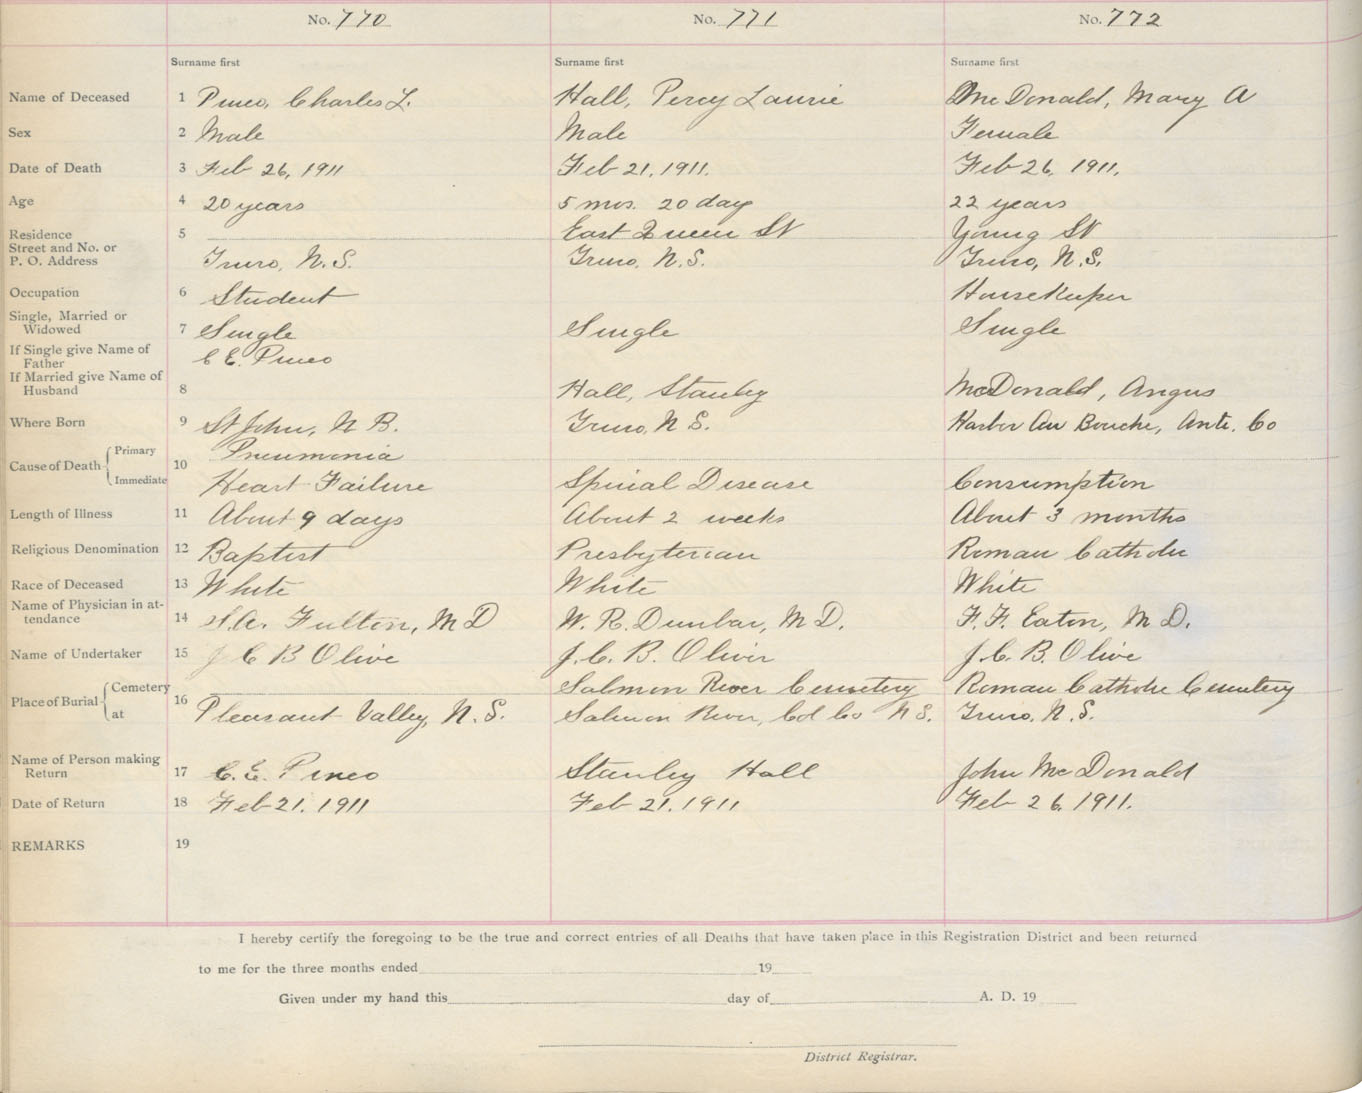 No. 770 No. 771 No. 772
Surname first Surname first Surname first
Name of Deceased 1 Pineo, Charles L. Hall, Percy Laurie McDonald, Mary A
Sex 2 Male Male Female
Date of Death 3 Feb 26, 1911 Feb 21, 1911. Feb 26, 1911.
Age 4 20 years 5 mos. 20 day 22 years
Residence 5 East Queen St Young St
Street and No. or
P. O. Address Truro, N.S. Truro, N.S. Truro, N.S.
Occupation 6 Student Housekeeper
Single, Married or
Widowed 7 Single Single Single
If Single give Name of
Father C E. Pineo
If Married give Name of
Husband 8 Hall, Stanley McDonald, Angus
Where Born 9 St John, N B. Truro, N S. Harbor Au Bouche, Ant. Co
Cause of Death Primary 10 Pneumonia
Immediate Heart Failure Spinal Disease Consumption
Length of Illness 11 About 9 days About 2 weeks About 3 months
Religious Denomination 12 Baptist Presbyterian Roman Catholic
Race of Deceased 13 White White White
Name of Physician in at-
tendance 14 Fulton, M D W. R. Dunbar, M D. F. F. Eaton, M D.
Name of Undertaker 15 J C B Olive J. C. B. Oliver J. C. B. Olive
Place of Burial Cemetery 16 Salmon River Cemetery Roman Catholic Cemetery
at Pleasant Valley, N. S. Salmon River, Col Co N S. Truro, N. S.
Name of Person making
Return 17 C. E. Pineo Stanley Hall John McDonald
Date of Return 18 Feb 21. 1911 Feb 21. 1911 Feb 26. 1911.
REMARKS 19
I hereby certify the foregoing to be the true and correct entries of all Deaths that have taken place in this Registration District and been returned
to me for the three months ended 19
Given under my hand this day of A. D. 19
District Registrar.